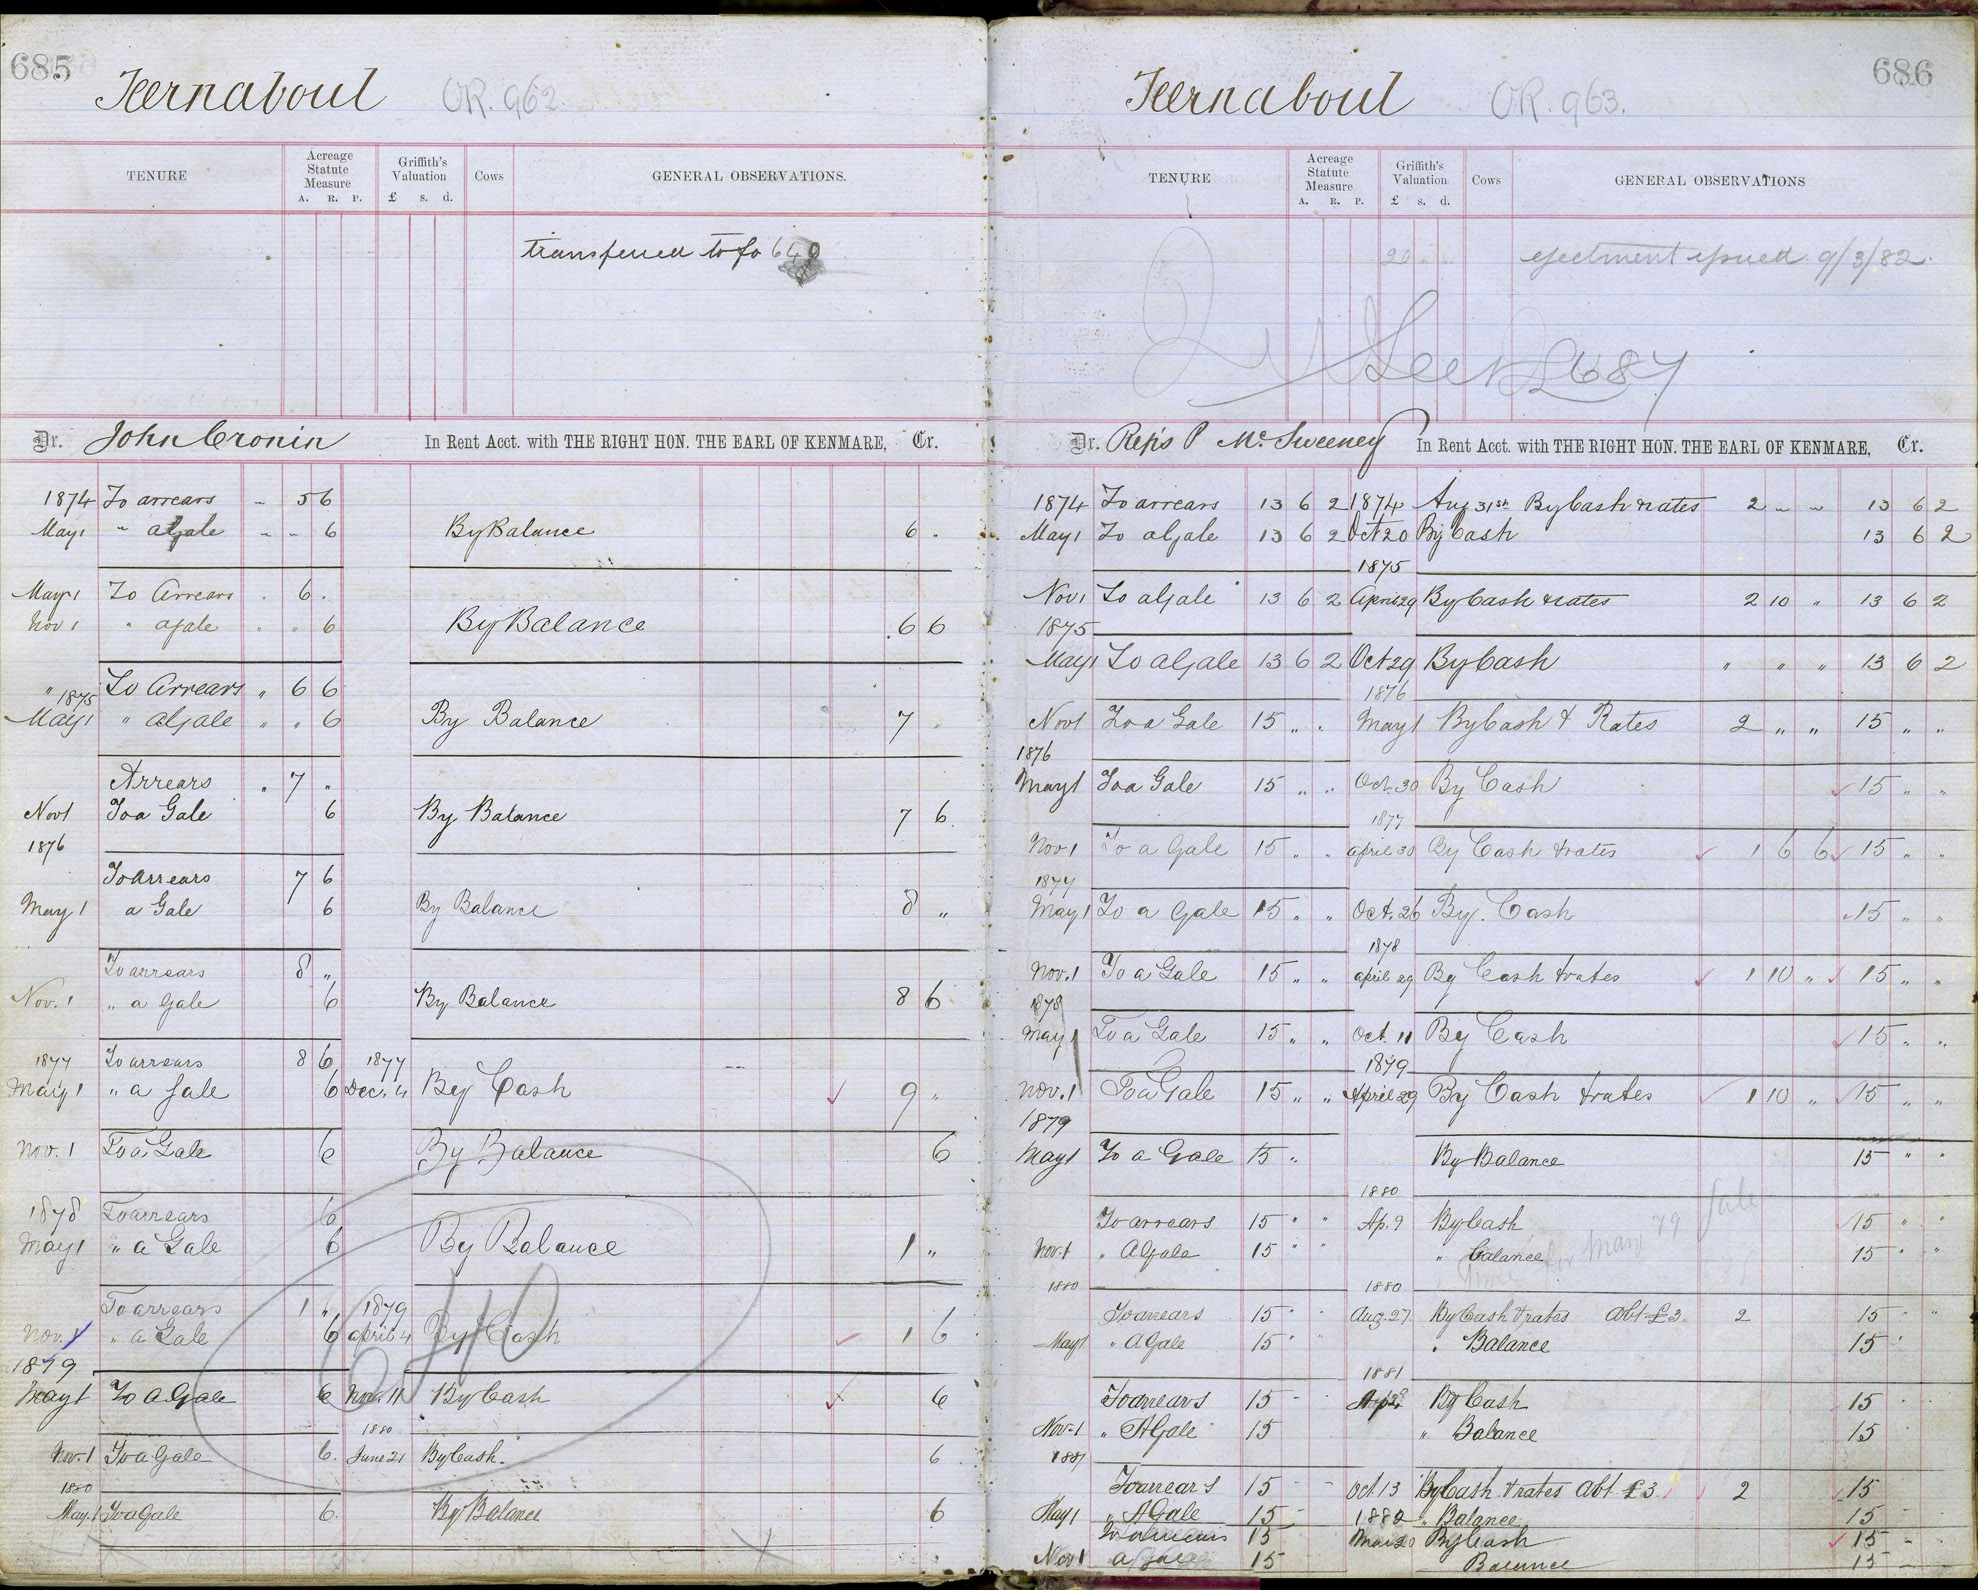 685
Kernaboul OR. 962
TENURE Acreage Statute Measure A. R. P. Griffith's Valuation £ s. d. Cows GENERAL OBSERVATIONS.
transferred to fo 640
Dr. John Cronin In Rent Acct. with THE RIGHT HON. THE EARL OF KENMARE, Cr.
1874 To arrears - 5 6
May 1 " a Gale - - 6 By Balance 6 .
May 1 To Arrears . 6 .
Nov 1 " a Gale " " 6 By Balance 6 6
" To Arrears " 6 6
1875
May 1 " a Gale " " 6 By Balance 7 .
Arrears " 7 "
Nov 1 To a Gale 6 By Balance 7 6
1876
To arrears 7 6
May 1 a Gale 6 By Balance 8 "
To arrears 8 "
Nov. 1 " a Gale 6 By Balance 8 6
1877 To arrears 8 6 1877
May 1 " a Gale 6 Dec. 4 By Cash 9 "
Nov. 1 To a Gale 6 By Balance 6
1878 To arrears 6
May 1 " a Gale 6 By Balance 1 "
To arrears 1 " 1879
Nov. 1 " a Gale 6 April 4 By Cash 1 6
640
1879
May 1 To a Gale 6 Nov. 11 By Cash 6
1880
Nov. 1 To a Gale 6. June 21 By Cash. 6
1880
May 1 To a Gale 6. By Balance 6
686
Kernaboul OR. 963.
TENURE Acreage Statute Measure A. R. P. Griffith's Valuation £ s. d. Cows GENERAL OBSERVATIONS
20 ejectment issued 9/3/82
See 687
Dr. Reps P McSweeney In Rent Acct. with THE RIGHT HON. THE EARL OF KENMARE, Cr.
1874 To arrears 13 6 2 1874 Aug 31st By Cash & rates 2 " " 13 6 2
May 1 To a Gale 13 6 2 Oct 20 By Cash 13 6 2
1875
Nov 1 To a Gale 13 6 2 April 29 By Cash & rates 2 10 " 13 6 2
1875
May 1 To a Gale 13 6 2 Oct 29 By Cash " " " 13 6 2
1876
Nov 1 To a Gale 15 " . May 1 By Cash & Rates 2 " " 15 " "
1876
May 1 To a Gale 15 " " Oct. 30 By Cash 15 " "
1877
Nov 1 To a Gale 15 " " April 30 By Cash & rates 1 6 6 15 " "
1877
May 1 To a Gale 15 " " Oct. 26 By. Cash 15 " "
1878
Nov. 1 To a Gale 15 " " April 29 By Cash & rates 1 10 " 15 " "
1878
May 1 To a Gale 15 " " Oct. 11 By Cash 15 " "
1879
Nov. 1 To a Gale 15 " " April 29 By Cash & rates 1 10 " 15 " "
1879
May 1 To a Gale 15 " By Balance 15 " "
1880
To arrears 15 " " Ap. 9 By Cash 15 " "
for May 79 Gale
Nov. 1 " A Gale 15 " " " balance 15 " "
1880 1880
To arrears 15 " Aug. 27 By Cash & rates abt £3. 2 15 " "
May 1 " A Gale 15 " " Balance 15 "
1881
To arrears 15 - By Cash 15
Nov. 1 " A Gale 15 " Balance 15
1881
To arrears 15 - - Oct. 13 By Cash & rates abt £3. 2 15
May 1 " A Gale 15 - 1882 " Balance 15 -
To arrears 15 Mar 20 By Cash 15 -
Nov 1 a Gale 15 Balance 15 -